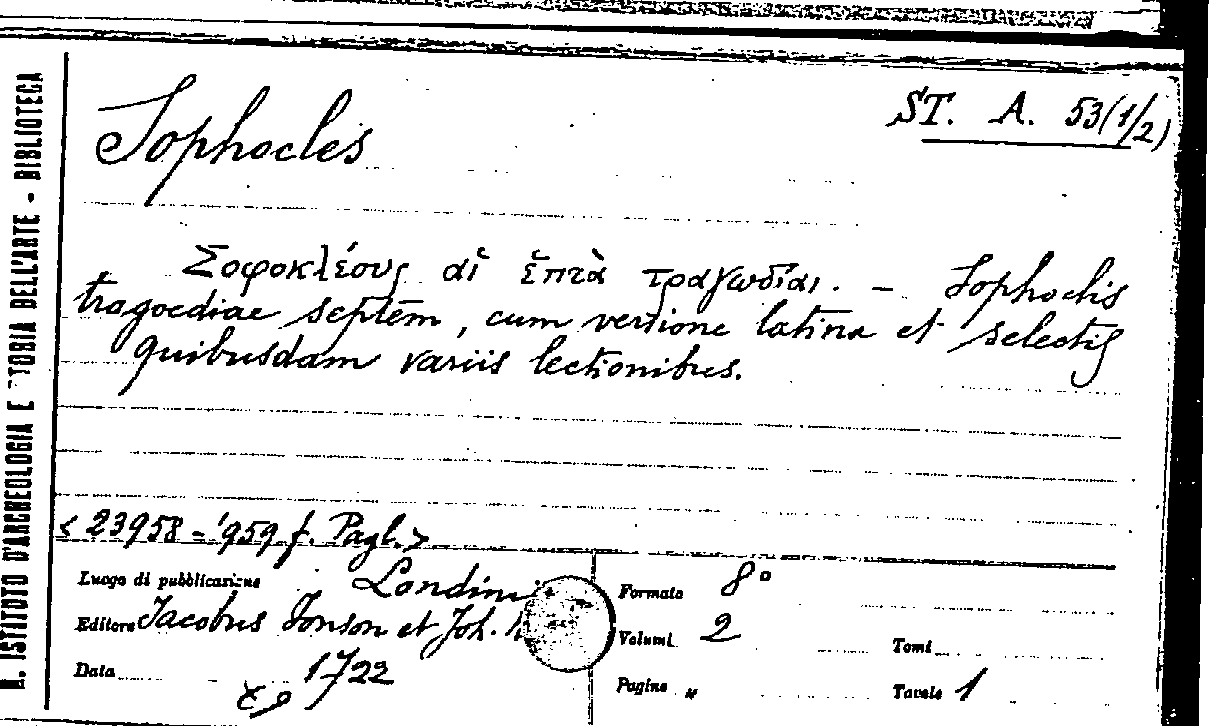 R. ISTITUTO D'ARCHEOLOGIA E STORIA DELL'ARTE - BIBLIOTECA
ST. A. 53(1/2)
Sophocles
Σοφοκλέους αἱ ἑπτὰ τραγωδίαι. - Sophoclis
tragoediae septem, cum versione latina et selectis
quibusdam variis lectionibus.
< 23958 = '959 f. Pagl. >
Luogo di pubblicazione Londini
Editore Jacobus Tonson et Joh.
Data 1722
Formato 8°
Volumi 2 Tomi
Pagine " Tavole 1